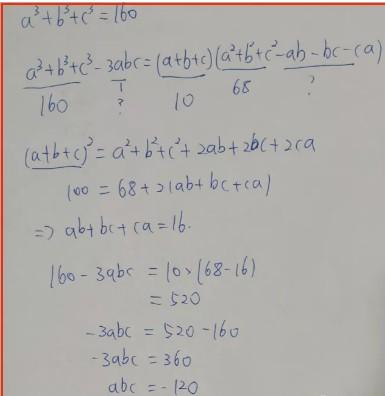 a³+b³+c³=160
a³+b³+c³-3abc=(a+b+c)(a²+b²+c²-ab-bc-ca)
160 ? 10 68 ?
(a+b+c)²=a²+b²+c²+2ab+2bc+2ca
100=68+2(ab+bc+ca)
=> ab+bc+ca=16.
160-3abc=10×(68-16)
=520
-3abc=520-160
-3abc=360
abc=-120